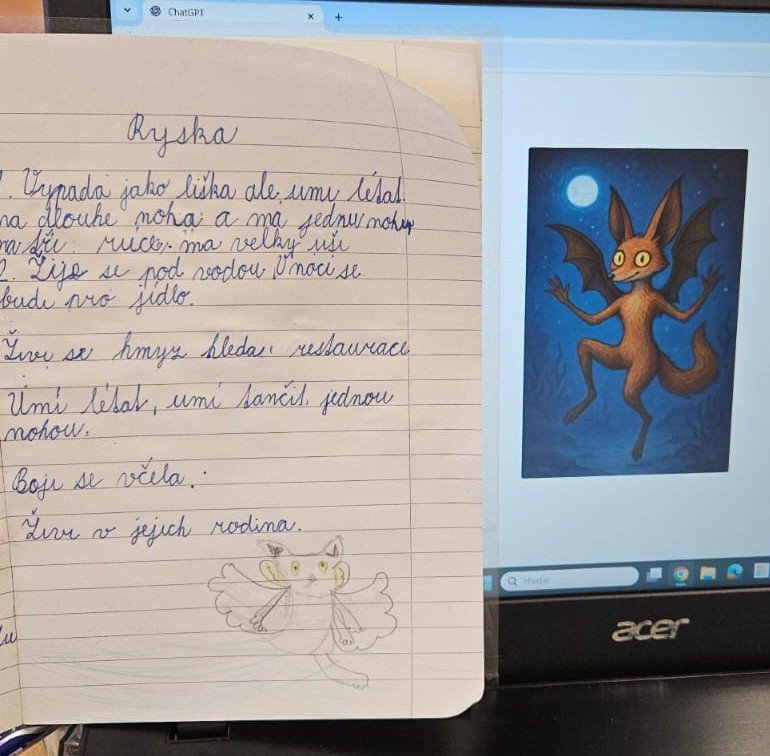 ChatGPT
Ryska
. Vypadá jako liška ale umy létat.
na dlouhe noha a ma jednu nohu
ma tři ruce. ma velky uši
2. Žije se pod vodou. V noci se
budi pro jídlo.
Živi se hmyz hleda restaurace
Umí létat, umí tančit jednou
nohou.
Boji se včela.
Živi v jejich rodina.
Hledat
acer